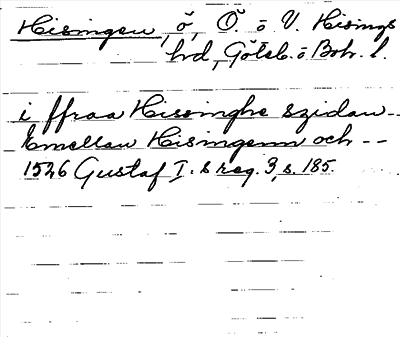 Hisingen, ö, Ö. o V. Hisings
hrd, Göteb. o Boh. l.
i ffraa Hissinghe szidan --
Emellan Hisingenn och --
1526 Gustaf I. s reg. 3, s. 185.